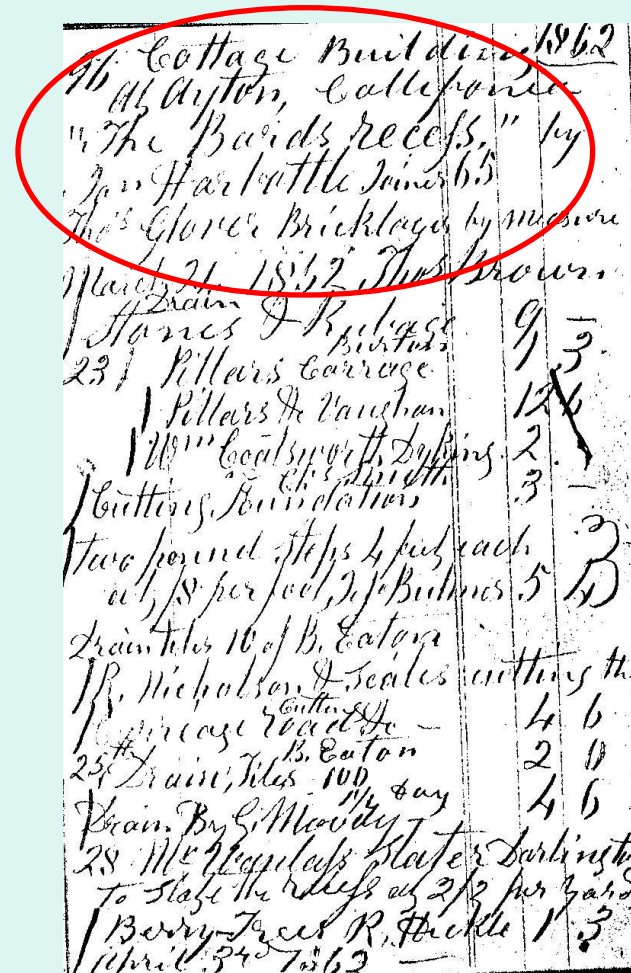 96 Cottage Building 1862
at Ayton, California
"The Bards recess," by
Jon Harbottle Joiner 65
Thos Glover Bricklayer by measure
March 21 1862 Thos Brown
Drain
Stones & Rubage 9 –
Burtons
23 Pillars Carrage 1 3
Pillars Do Vaughan 12 6
Wm Coatsworth Dyking 2
Cutting Foundation 3 –
two pound steps 4 feet each
at 1/8 per foot, 5
Drain tiles 10 of B. Eaton
R. Nicholson & Scales cutting the
Cutting
road &c – 4 6
B. Eaton
25th Drain Tiles 100 2 0
1 1/2 day
Drain By G. Moody – 4 6
28 Slater Darlington
To Slate the recess at 2/2 per yard
Berry Trees R, Huckle 1 3
April 3rd 1862 –